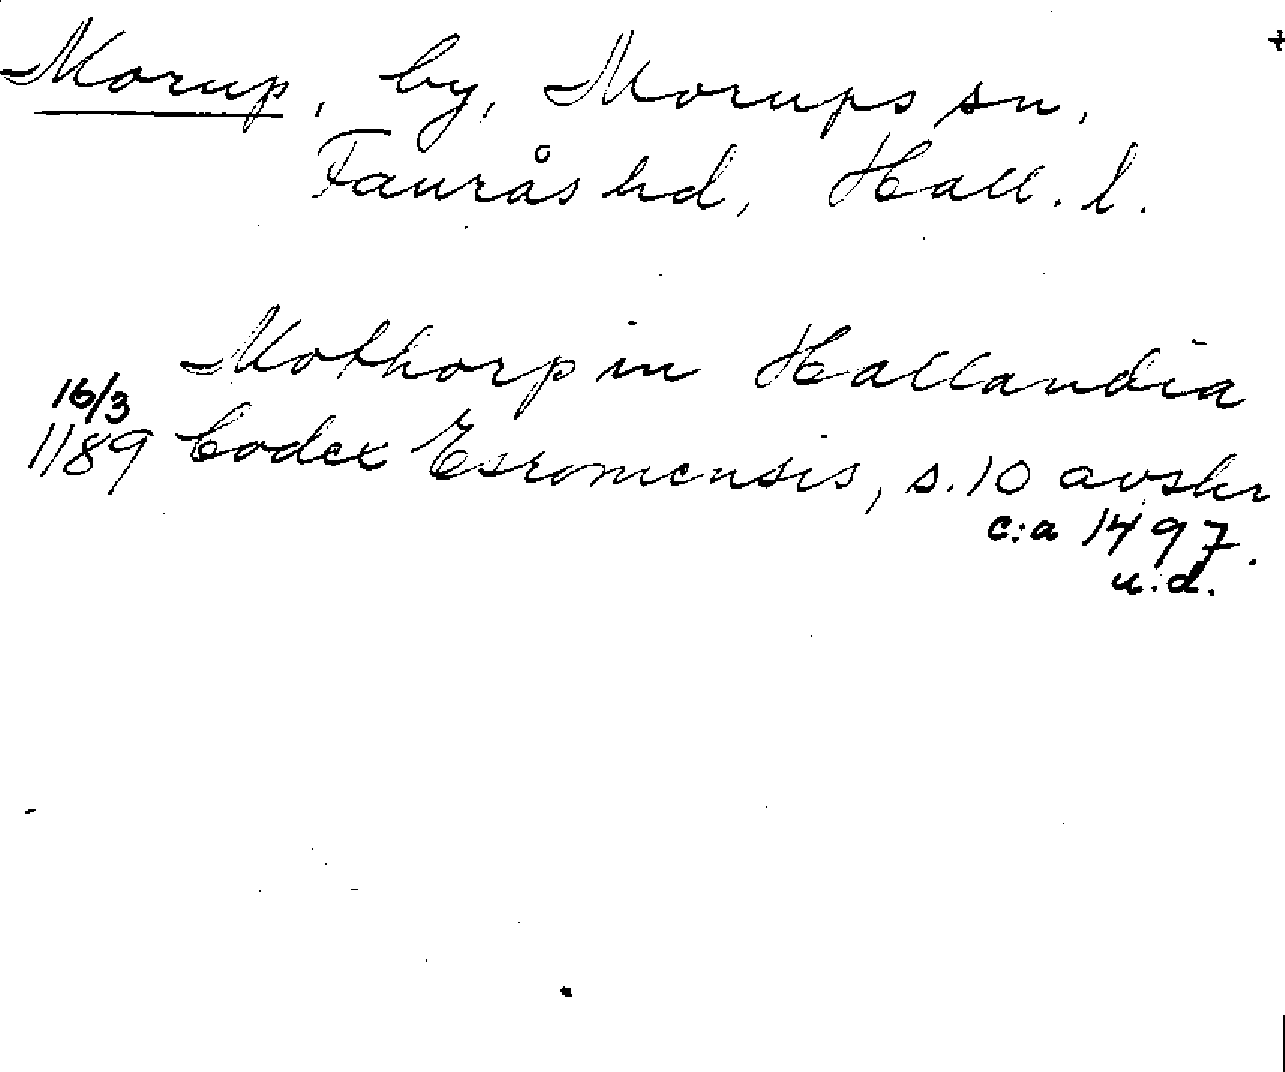 Morup, by, Morups sn,
Fauråshd, Hall. l.
Mothorp in Hallandia
16/3
1189 Codex Esromensis, s.10 avskr
c:a 1497.
u.d.